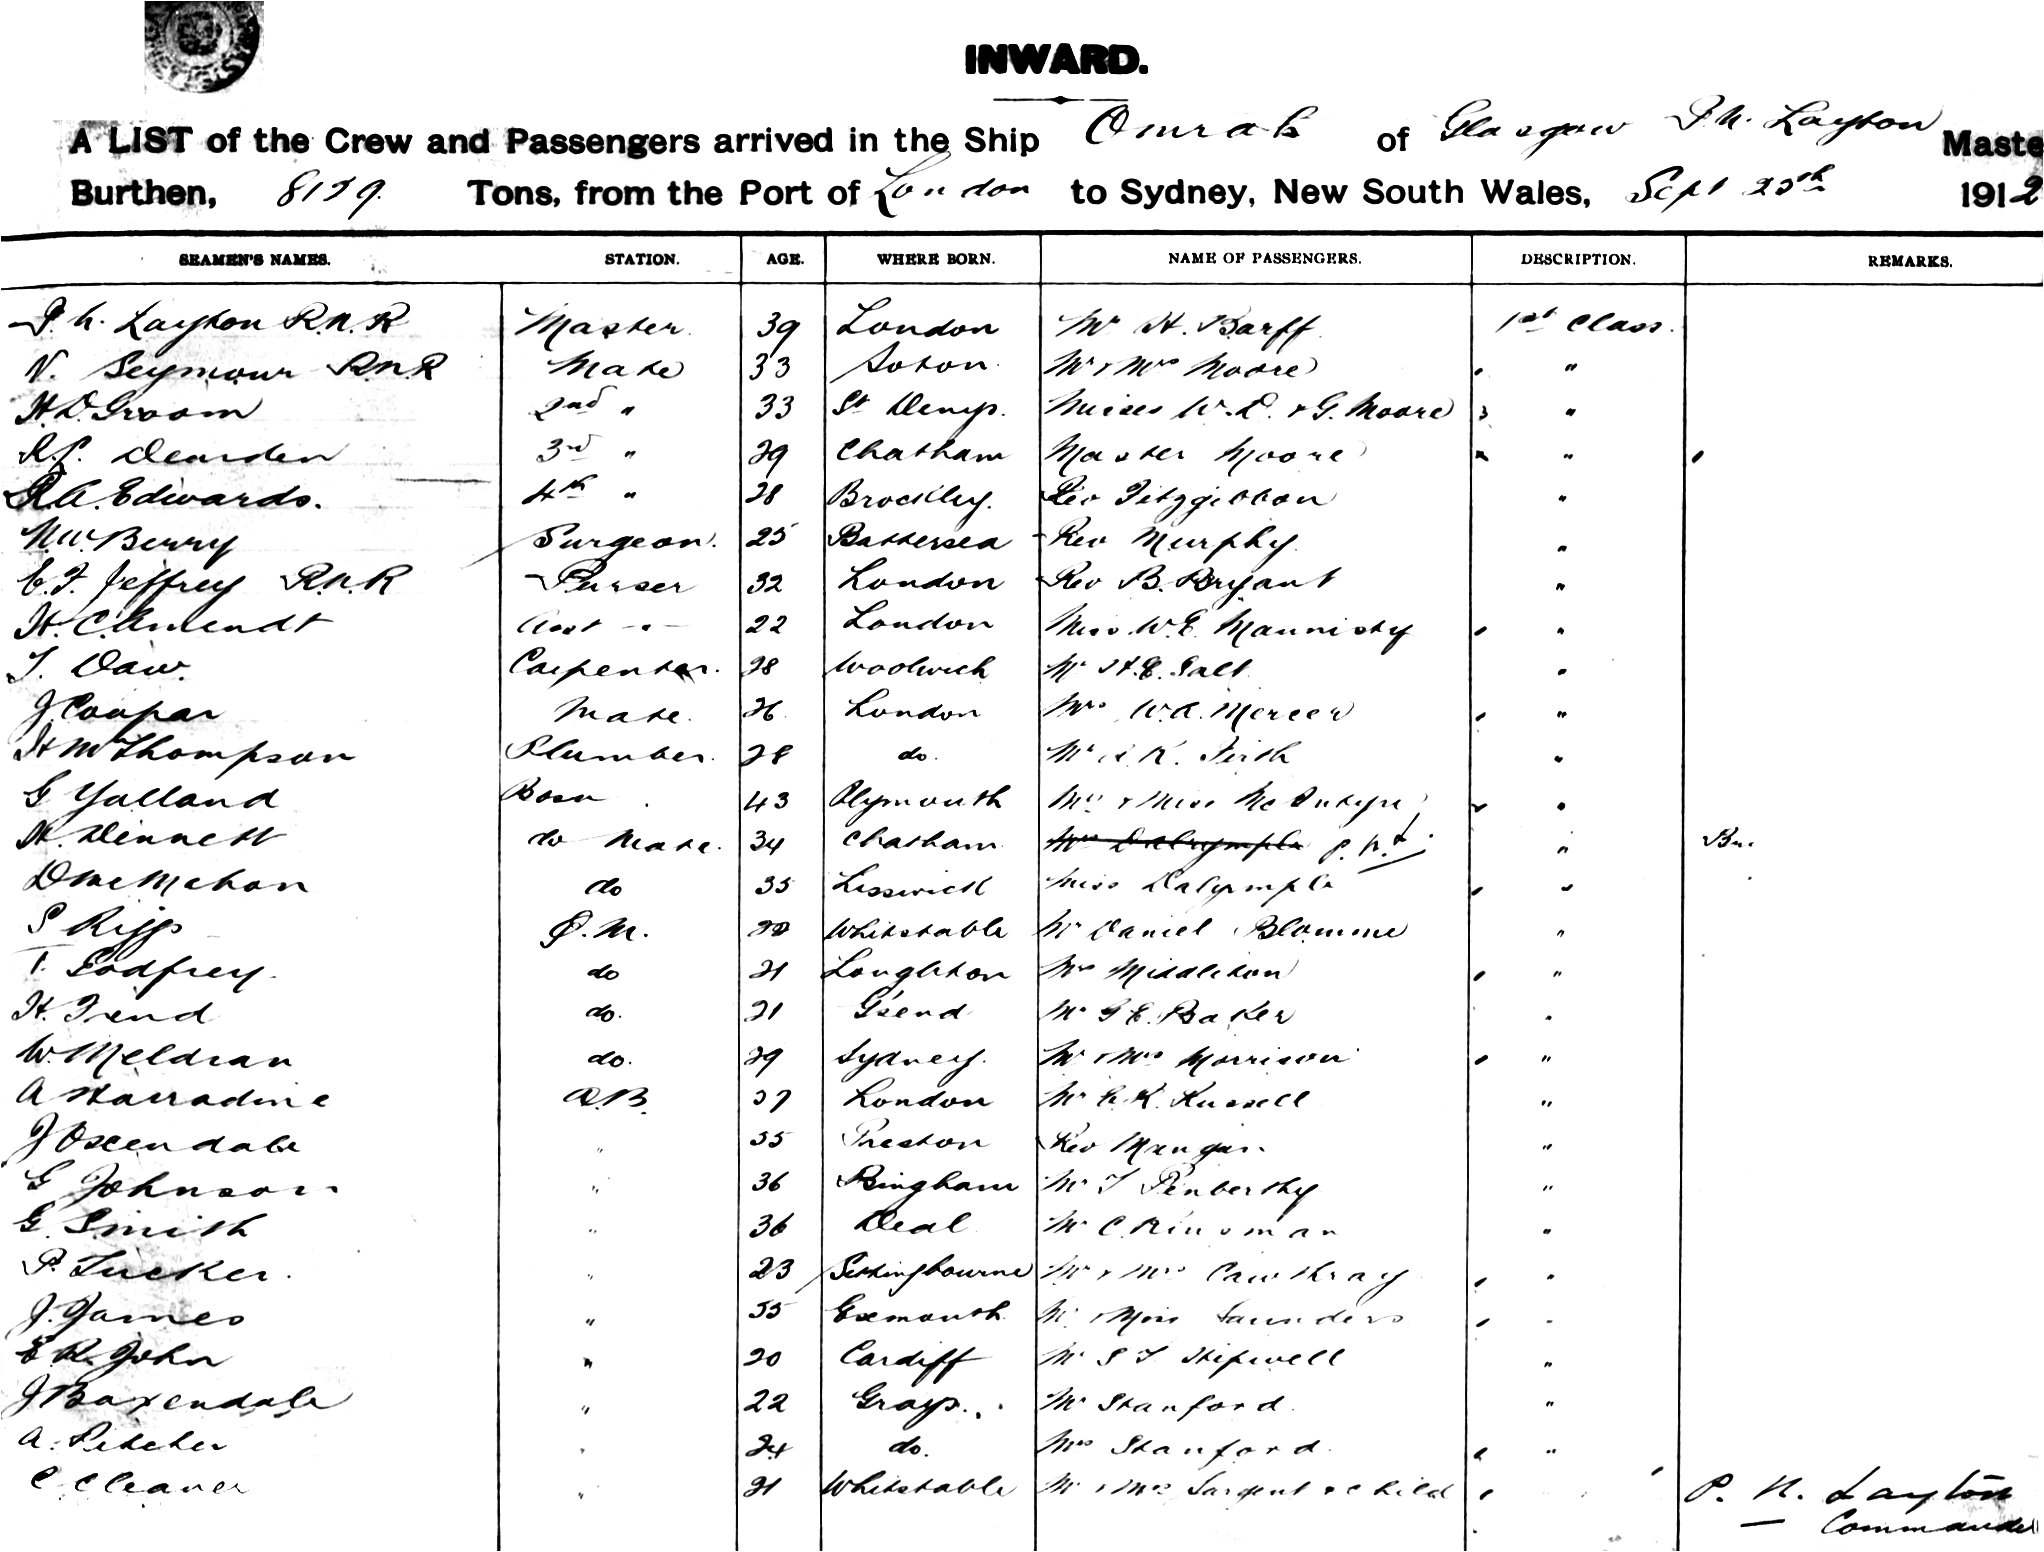 INWARD.
A LIST of the Crew and Passengers arrived in the Ship Omrah of Glasgow P. N. Layton Maste
Burthen, 8129. Tons, from the Port of London to Sydney, New South Wales, Sept 25th 1912
SEAMEN'S NAMES. STATION. AGE. WHERE BORN. NAME OF PASSENGERS. DESCRIPTION. REMARKS.
P. N. Layton R.N.R Master. 39 London Mr H. Barff 1st Class.
V. Seymour R.N.R Mate 33 Soton. Mr & Mrs Moore "
H. D. Groom 2nd " 33 St Denys. Misses W. D. & G. Moore "
Dearden 3rd " 29 Chatham Master Moore "
Edwards. 4th " 28 Brockley. Rev Fitzgibbon "
Berry Surgeon. 25 Battersea Rev Murphy. "
E. F. Jeffrey R.N.R Purser 32 London Rev B. Bryant "
H. C. Amendt Asst " 22 London Miss W. E. "
T. Daw. Carpenter. 28 Woolwich Mr H. E. Salt "
J Coupar Mate. 26 London Mrs W. A. Mercer "
H McThompson Plumber. 28 do. Mr K. Firth "
G Yolland Bosn 43 Plymouth & Miss McIntyre "
H. Dennett do Mate. 34 Chatham Mrs Dalrymple "
D McMahon do 35 Miss Dalrymple "
S Riggs Q. M. Whitstable Mr Daniel Blomme "
T. Godfrey. do 21 Loughton Mrs Middleton "
H. Trend do. 21 G'send Mr G E. Baker "
W. Meldran do. 29 Sydney. Mr & Mrs Morrison "
A Harradine A.B. 37 London Mr E. K. Russell "
J Oxendale " 55 Preston Rev Mangan "
G Johnson " 36 Bingham Mr T Penberthy "
G. Smith " 36 Deal Mr C. Kinsman "
P. Tucker. " 23 Sittingbourne Mr & Mrs Cawthray "
J. James " 55 Exmouth Mr & Miss Saunders "
John " 20 Cardiff Mr S T Hipwell "
J Baxendale " 22 Grays. Mr Stanford. "
A. Pitcher " 24 do. Mrs Stanford. "
C Cleaver " 21 Whitstable Mr & Mrs Sargent & child P. N. Layton
Commander